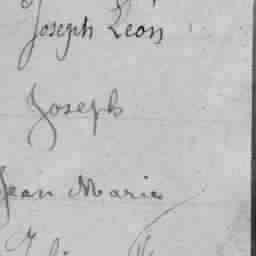 Joseph Léon
Joseph
Jean Marie